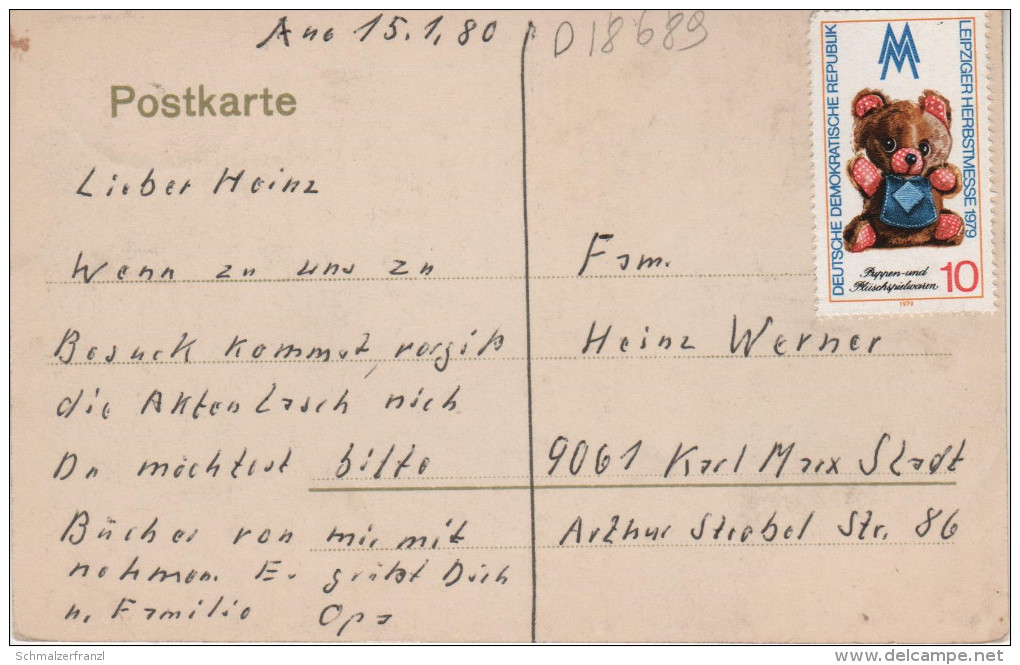 Aue 15.1.80
D 18689
Postkarte
Lieber Heinz
Wenn zu uns zu
Besuck kommst, vergiß
die Aktentasch nich
Du möchtest bitte
Bücher von mir mit
nehmen. Es grüßt Dich
u. Familie Opa
Fam.
Heinz Werner
9061 Karl Marx Stadt
Arthur Strobel Str. 86
DEUTSCHE DEMOKRATISCHE REPUBLIK
LEIPZIGER HERBSTMESSE 1979
Puppen- und
Plüschspielwaren
10
1979
Schmalzerfranzl
delcampe.net